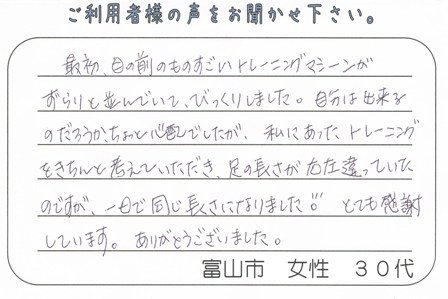 ご利用者様の声をお聞かせ下さい。
最初、目の前のものすごいトレーニングマシーンが
ずらりと並んでいて、びっくりしました。自分は出来る
のだろうか、ちょっと心配でしたが、私にあったトレーニング
をきちんと考えていただき、足の長さが右左違っていた
のですが、一日で同じ長さになりました!! とても感謝
しています。ありがとうございました。
富山市 女性 30代